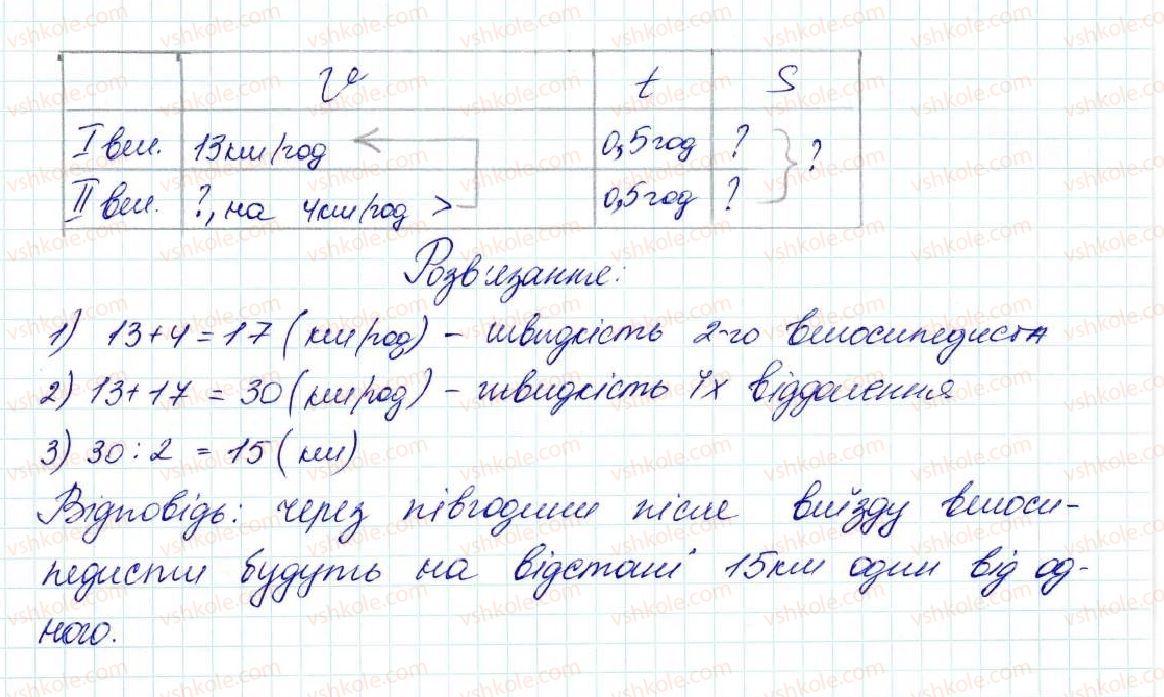 V t S
I вел. 13км/год 0,5год ? ?
II вел. ?, на 4км/год > 0,5год ?
Розв'язання:
1) 13+4=17 (км/год) – швидкість 2-го велосипедиста
2) 13+17 = 30 (км/год) – швидкість їх віддалення
3) 30:2 = 15 (км)
Відповідь: через півгодини після виїзду велоси-
педисти будуть на відстані 15км один від од-
ного.